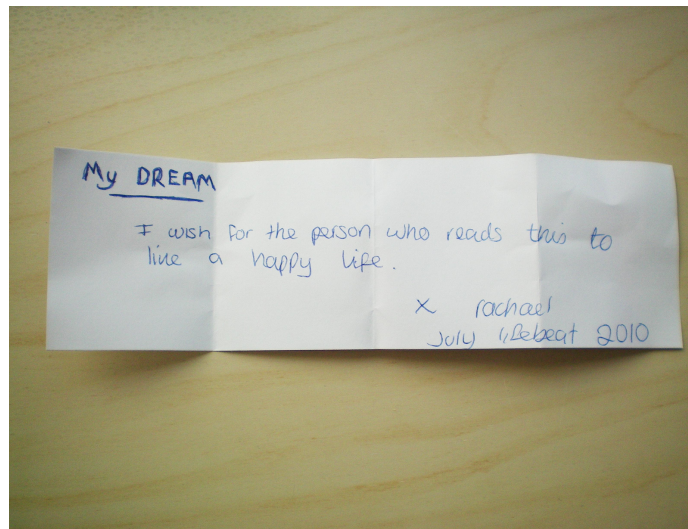 My DREAM
I wish for the person who reads this to
live a happy life.
x rachael
July lifebeat 2010